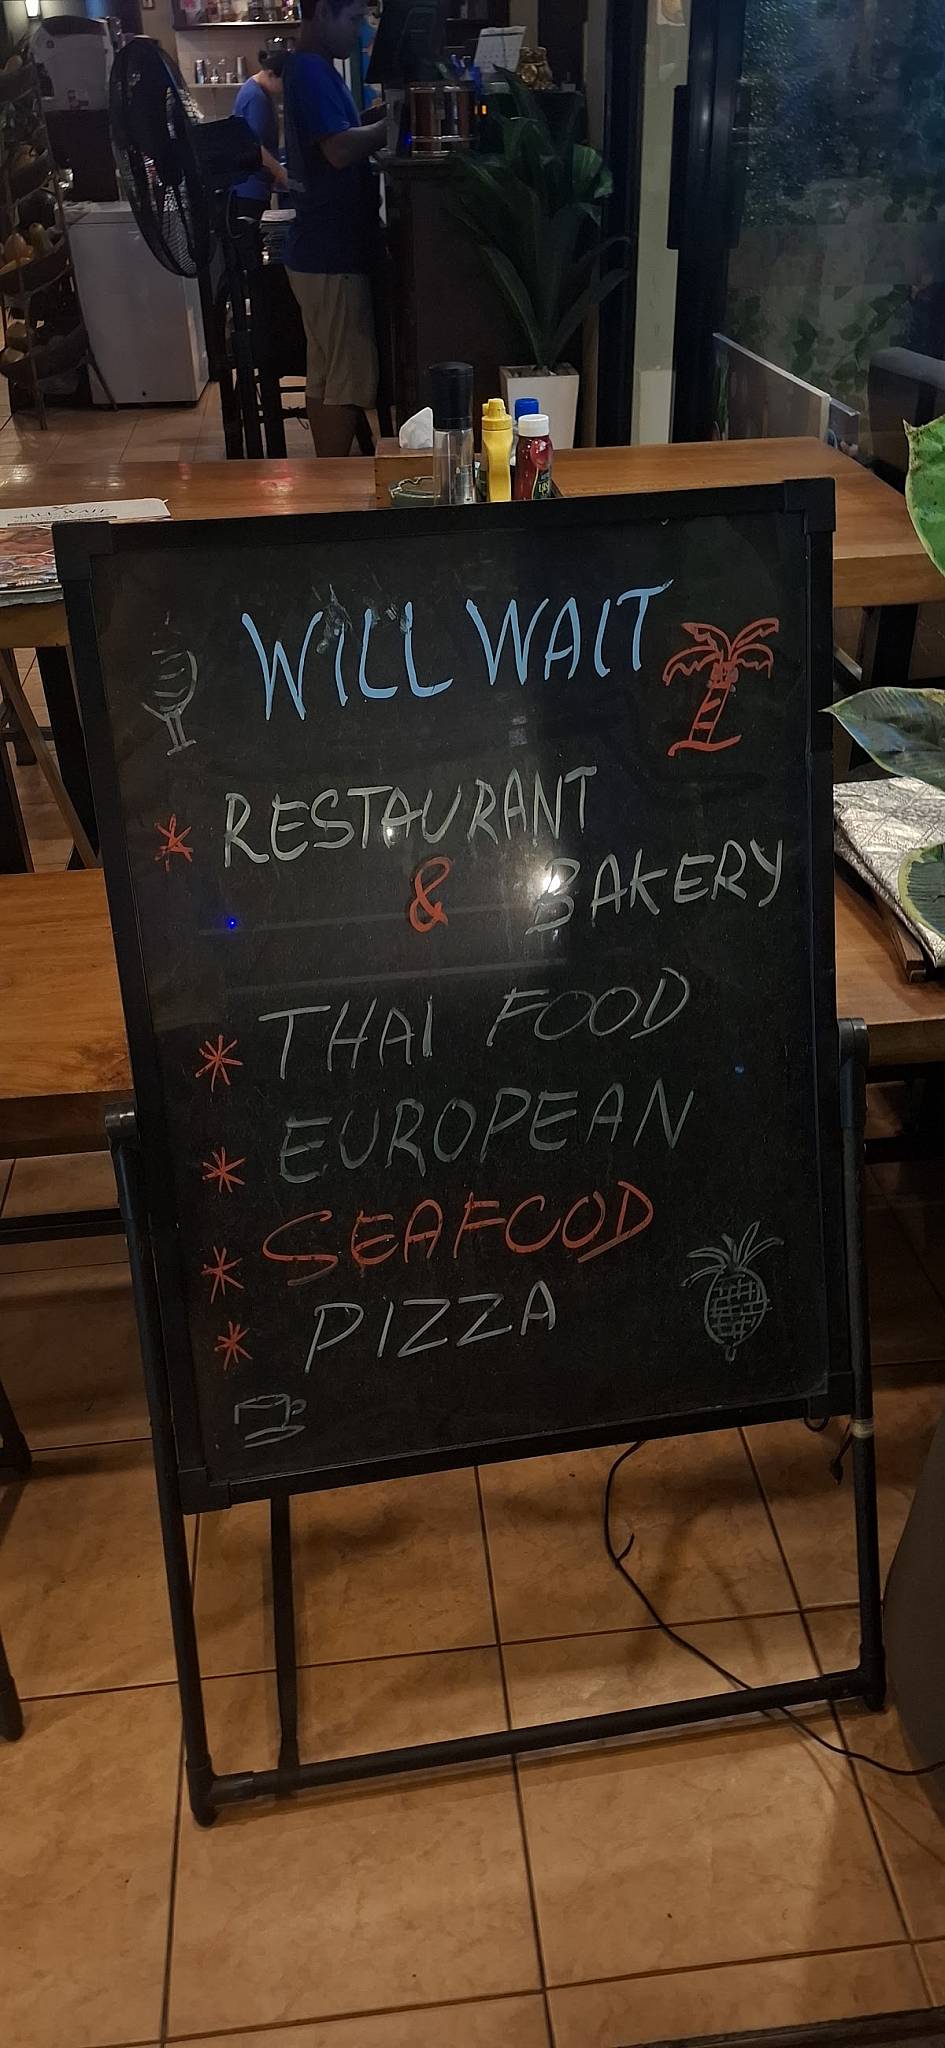 WILL WAIT
* RESTAURANT
& BAKERY
* THAI FOOD
* EUROPEAN
* SEAFOOD
* PIZZA